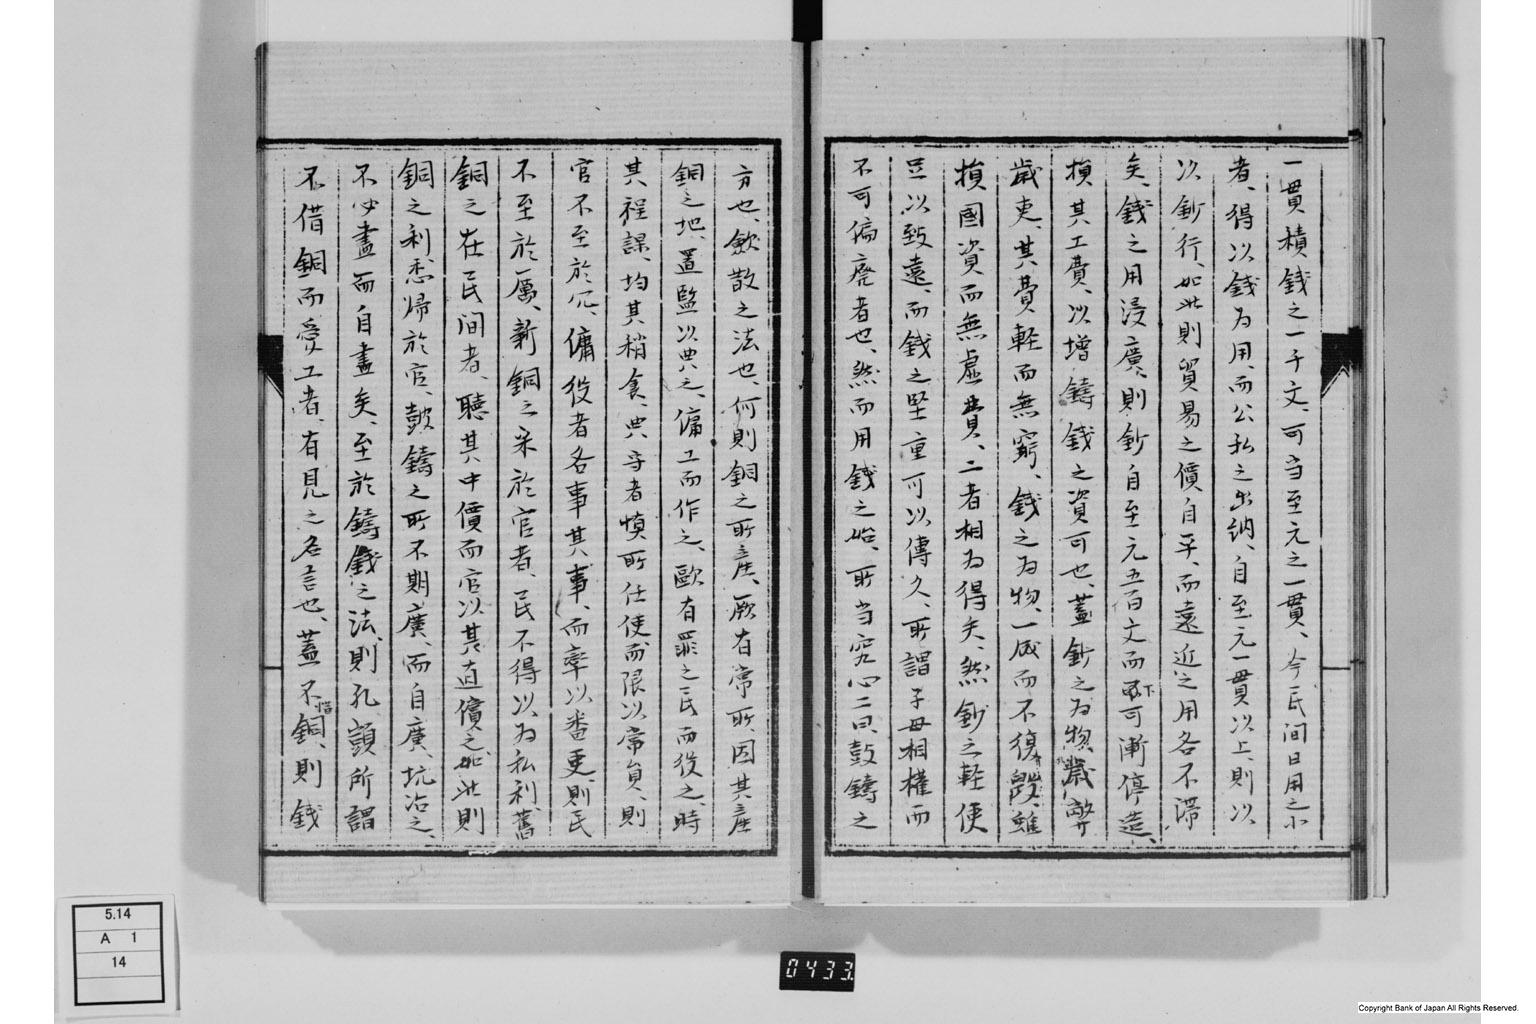 一貫積錢之一千文、可当至元之一貫、今民間日用之小
者、得以錢为用、而公私之出納、自至元一貫以上、則以
以鈔行、如此則貿易之價自平、而遠近之用各不滞
矣、錢之用浸廣、則鈔自至元五百文而下可漸停造、
損其工費、以增鑄錢之資可也、蓋鈔之为物、歳弊
歳更、其費軽而無窮、錢之为物、一成而不復毀、雖
損國資而無虚費、二者相为得矣、然鈔之軽便
足以致遠、而錢之堅重可以傳久、所謂子母相權而
不可偏廃者也、然而用錢之始、所当究心二曰、鼓鑄之
方也、歛散之法也、何則銅之所産、厥有常所、因其産
銅之地、置監以典之、傭工而作之、歐有罪之民而役之、時
其程課、均其稍食、典守者慎所任使、而限以常員、則
官不至於冗、傭役者各事其事、而率以番更、則民
不至於厲、新銅之采於官者、民不得以为私利、舊
銅之在民间者、聴其中價而官以其直償之、如此則
銅之利悉帰於官、鼓鑄之所不期廣、而自廣、坑冶之、
不必盡而自盡矣、至於鑄錢之法、則孔顗所謂
不借銅而愛工者、有見之名言也、蓋不惜銅、則錢
5.14
A 1
14
0433
Copyright Bank of Japan All Rights Reserved.